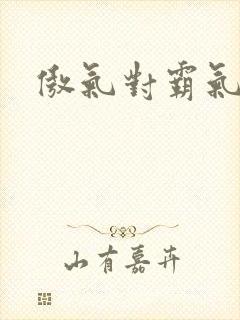 傲氣對霸氣
山有嘉卉